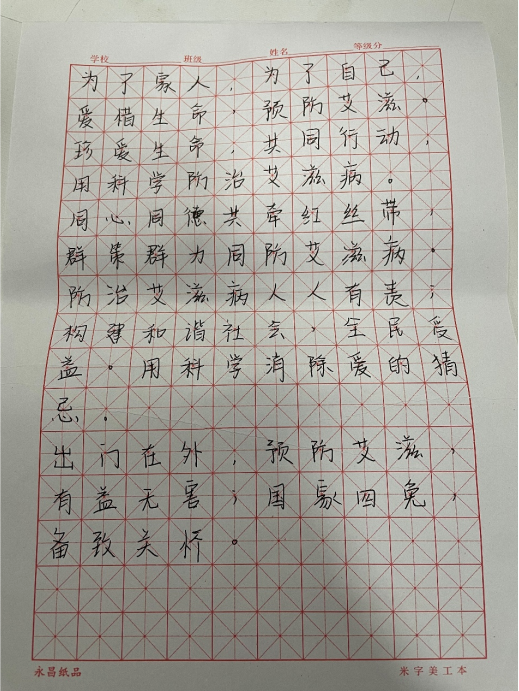 学校 班级 姓名 等级分
为了家人，为了自己，
爱惜生命，预防艾滋。
珍爱生命，共同行动，
用科学防治艾滋病。
同心同德共牵红丝带，
群策群力同防艾滋病。
防治艾滋病人人有责；
构建和谐社会，全民受
益。用科学消除爱的猜
忌。
出门在外，预防艾滋，
有益无害；国家四免，
备致关桥。
永昌纸品 米字美工本